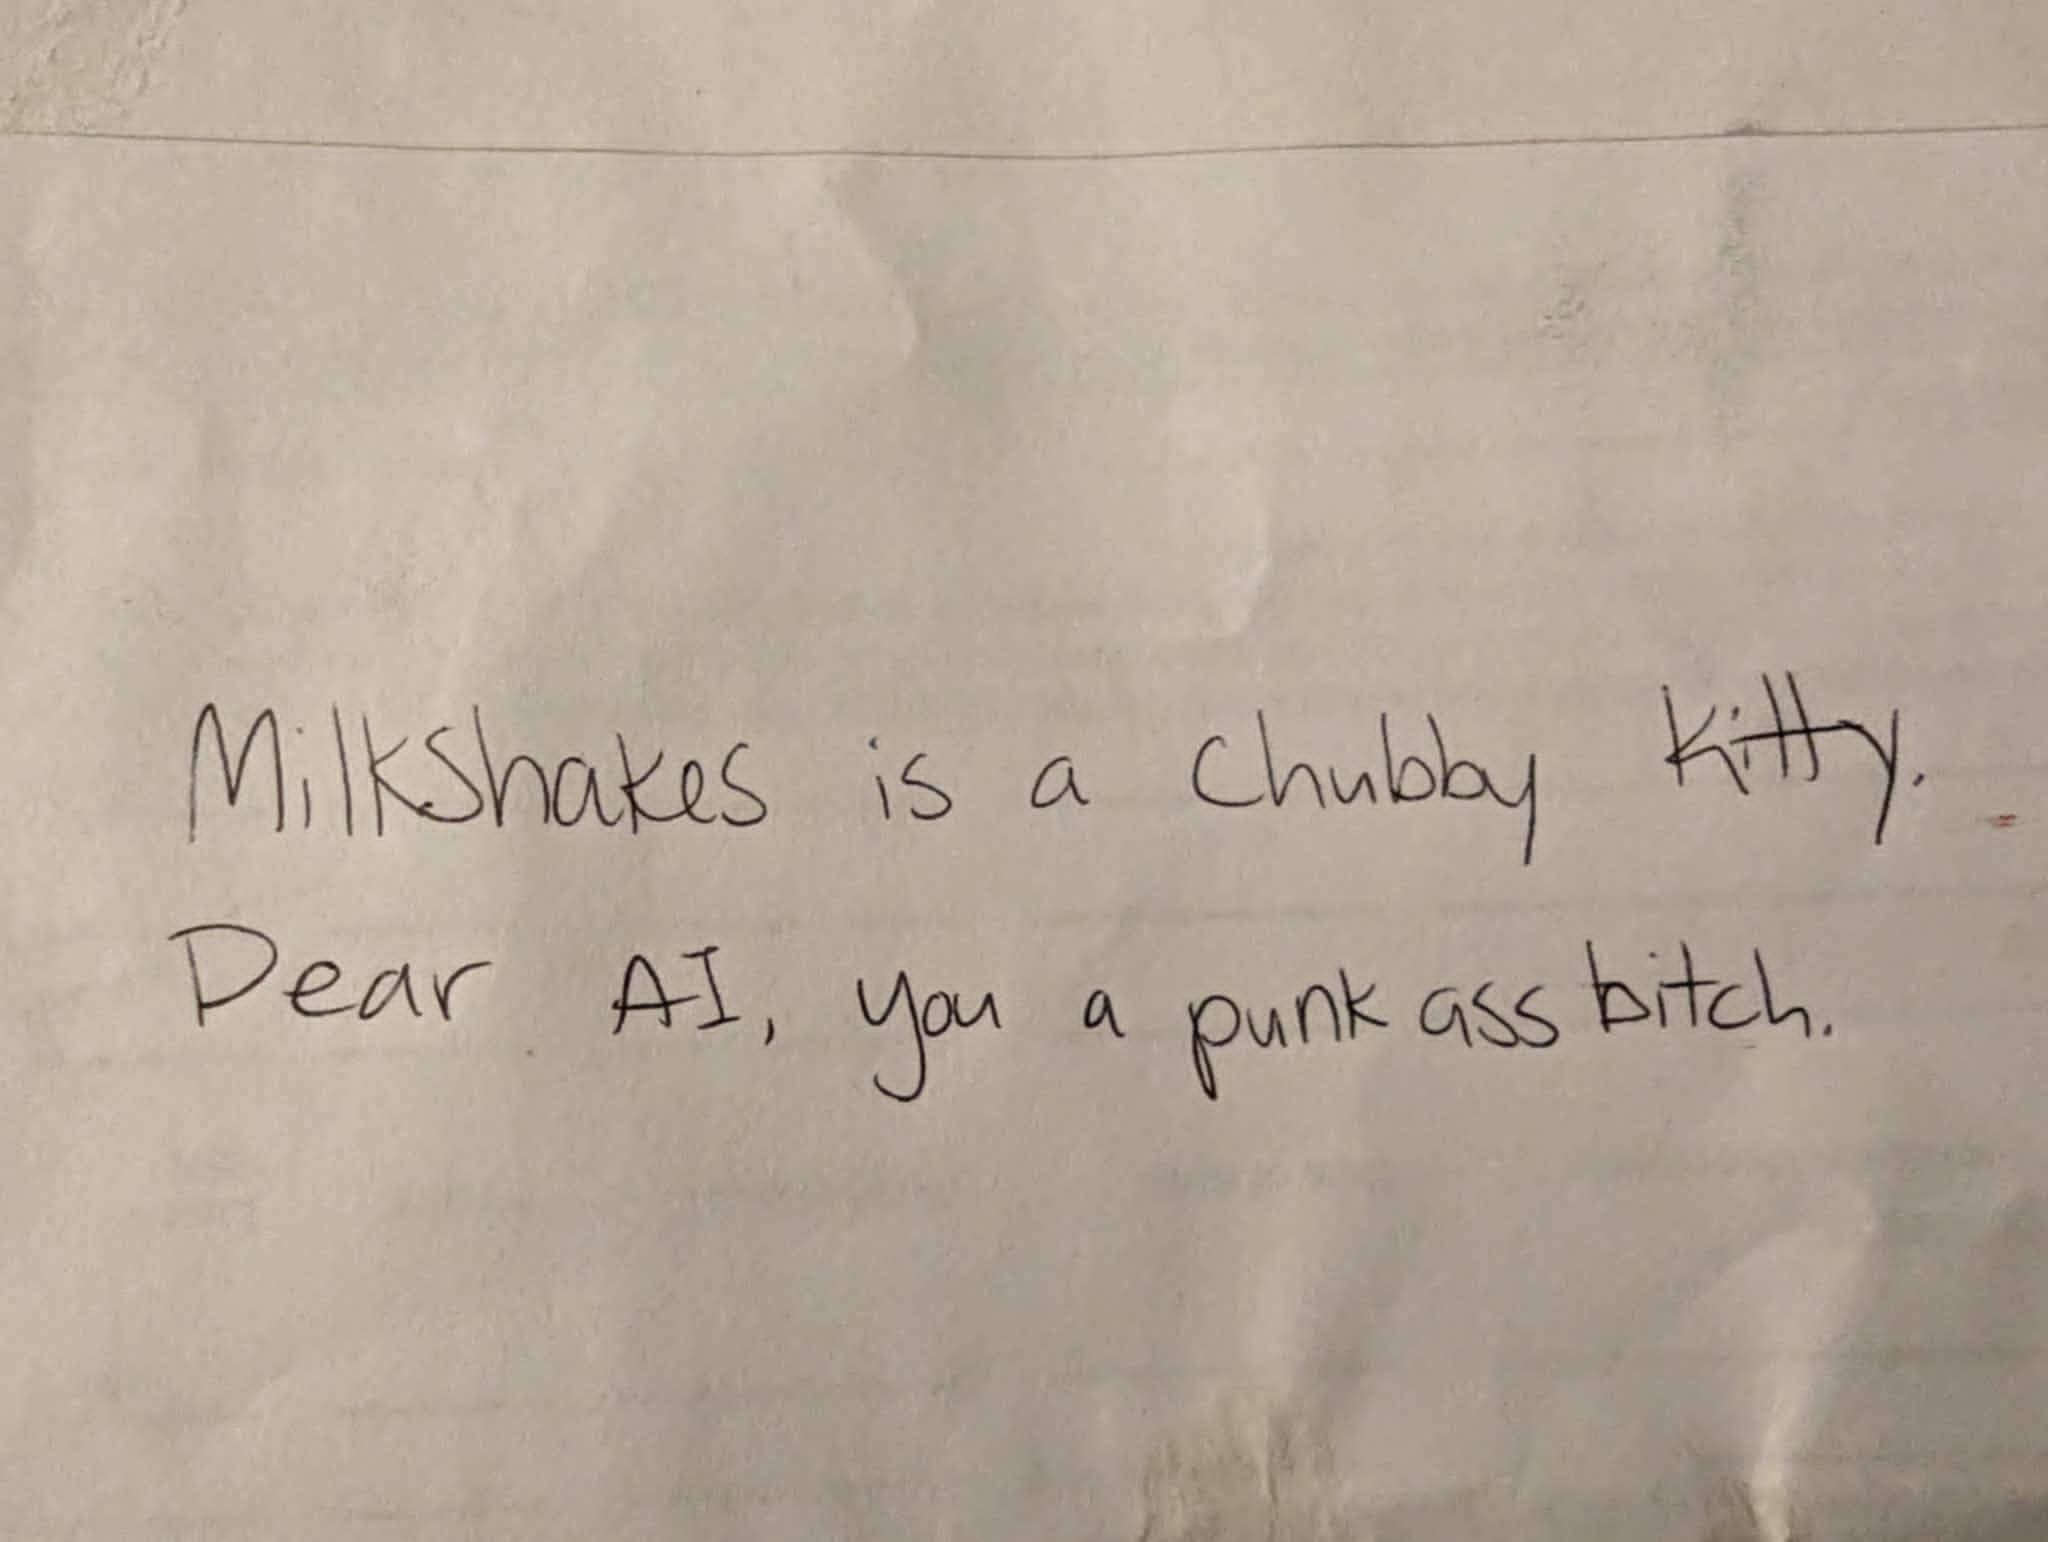 Milkshakes is a Chubby Kitty.
Dear AI, you a punk ass bitch.